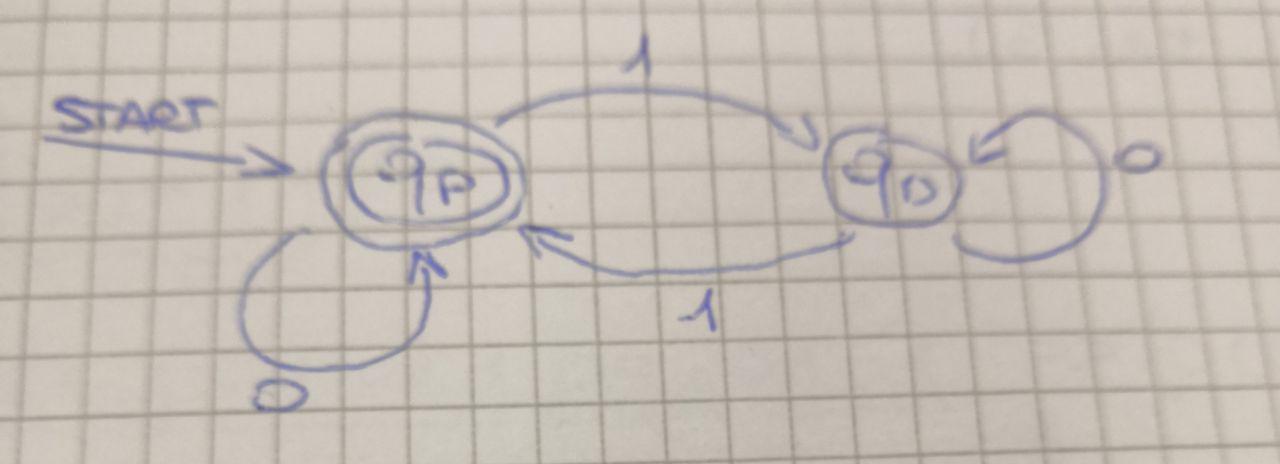 1
START
qP
qD
0
1
0